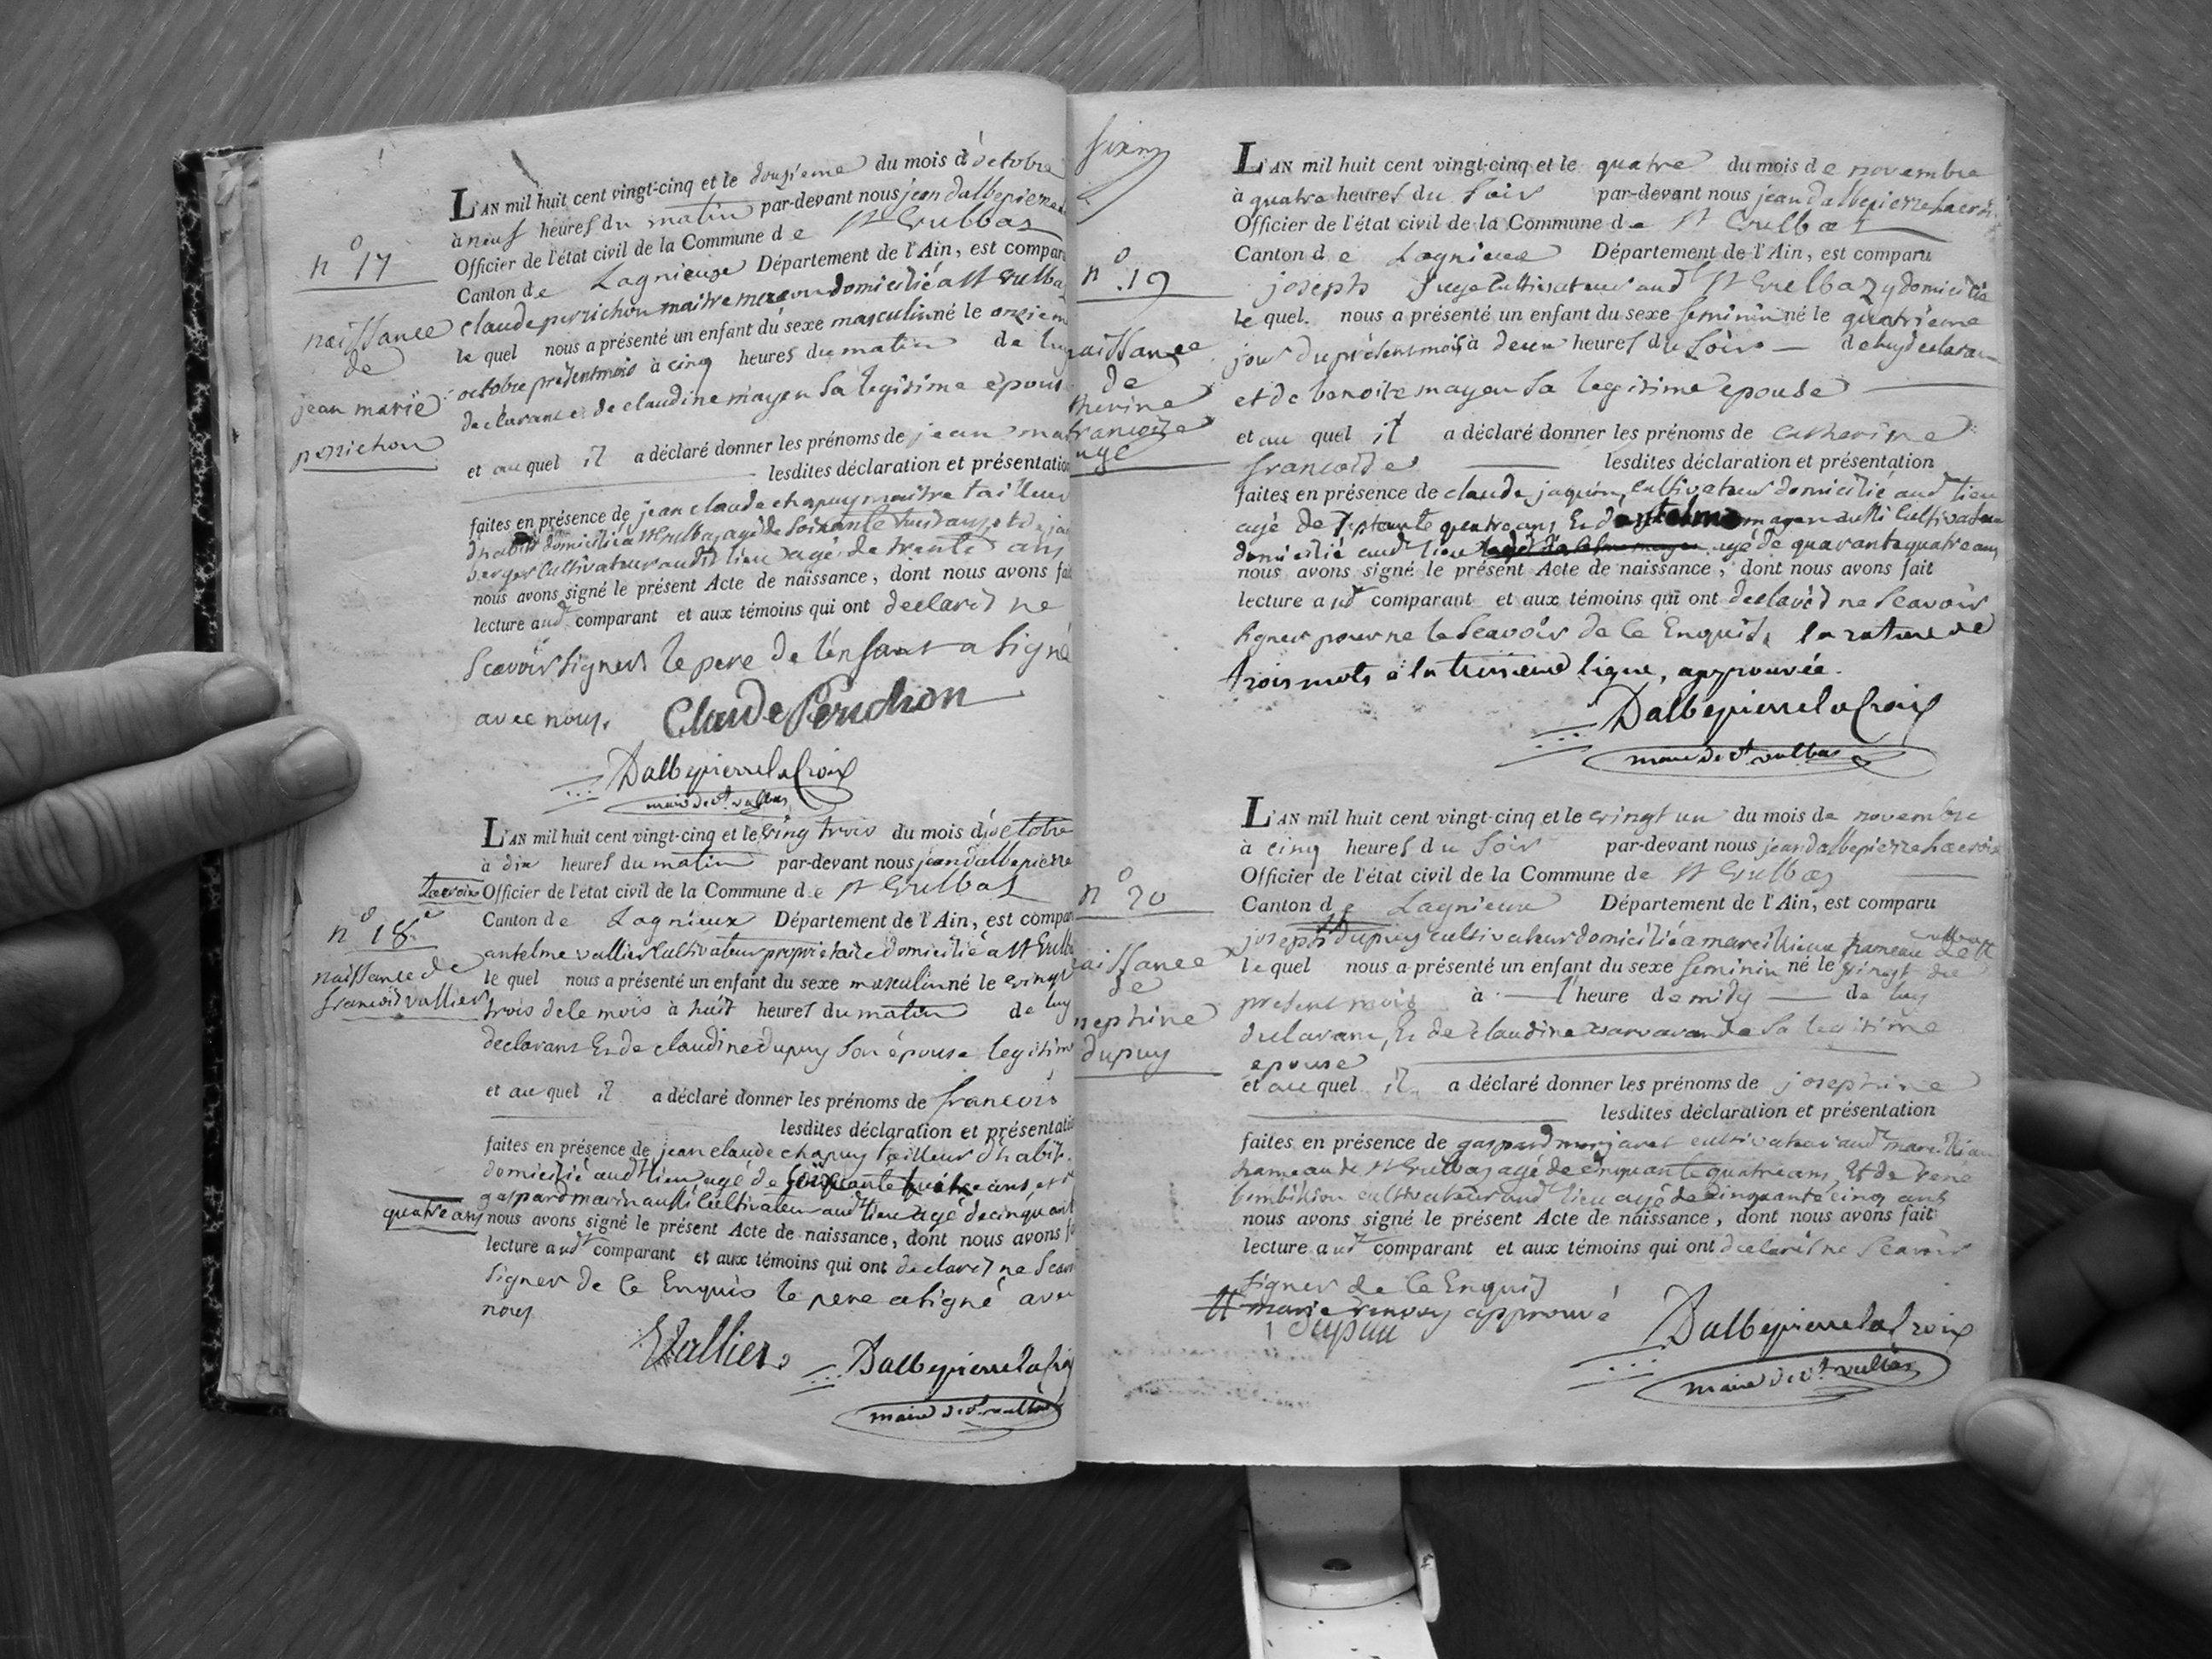 L'AN mil huit cent vingt-cinq et le douzieme du mois d'octobre
à neuf heures du matin par-devant nous jean dalbepierre
Officier de l'état civil de la Commune de St Vulbas
Canton de Lagnieux Département de l'Ain, est compar
claude perrichon maitre maçon domicilié a St Vulba
le quel nous a présenté un enfant du sexe masculin né le onziem
octobre present mois à cinq heures du matin de luy
declarant et de claudine mayeu sa legitime epous
et au quel il a déclaré donner les prénoms de jean mar
lesdites déclaration et présentation
faites en présence de jean claude chapuy maitre tailleur
d'habit domicilié a St Vulbas agé de soixante huit ans et de
berger cultivateur audit lieu agé de trente ans
nous avons signé le présent Acte de naissance, dont nous avons fai
lecture aud comparant et aux témoins qui ont declarés ne
scavoir signer le pere de l'enfant a signé
avec nous.
Claude Périchon
Dalbepierre la Croix
maire de St vulbas
n° 17
naissance
de
jean marie
perrichon
L'AN mil huit cent vingt-cinq et le ving trois du mois d'octobre
à dix heures du matin par-devant nous jean dalbepierre
Lacroix Officier de l'état civil de la Commune de St Vulbas
Canton de Lagnieux Département de l'Ain, est compar
antelme vallier cultivateur propriétaire domicilié a St Vulba
le quel nous a présenté un enfant du sexe masculin né le vingt
trois de le mois à huit heures du matin de luy
declarant et de claudine dupuy son épouse legitim
et au quel il a déclaré donner les prénoms de francois
lesdites déclaration et présentatio
faites en présence de jean claude chapuy tailleur d'habit
domicilié aud lieu agé de ans et
gaspard marin aussi cultivateur aud lieu agé de cinquant
quatre ans nous avons signé le présent Acte de naissance, dont nous avons f
lecture aud comparant et aux témoins qui ont declarés ne scav
signer de ce Enquis le pere a signé avec
nous
Vallier
Dalbepierre la Croix
maire de St vulbas
n° 18
naissance de
francois vallier
L'AN mil huit cent vingt-cinq et le quatre du mois de novembre
à quatre heures du soir par-devant nous jean dalbepierre lacroix
Officier de l'état civil de la Commune de St Vulbas
Canton de Lagnieux Département de l'Ain, est comparu
joseph juge cultivateur aud St Vulbaz y domicilié
le quel nous a présenté un enfant du sexe feminin né le quatrieme
jour du present mois à deux heures du soir de luy declaran
et de benoite mayeu sa legitime epouse
et au quel il a déclaré donner les prénoms de catherine
francoise lesdites déclaration et présentation
faites en présence de claude jaquin, cultivateur domicilié aud lieu
agé de septante quatre ans Et d'antelme mayeu aussi cultivateur
domicilié aud lieu agé de quarante quatre ans
nous avons signé le présent Acte de naissance, dont nous avons fait
lecture aud comparant et aux témoins qui ont declarés ne scavoir
signer pour ne le scavoir de ce Enquis, la rature de
trois mots a la troisieme ligne, approuvée.
Dalbepierre la Croix
maire de St vulbas
n° 19
aissance
de
therine
rancoise
uge
L'AN mil huit cent vingt-cinq et le vingt un du mois de novembre
à cinq heures du soir par-devant nous jean dalbepierre lacroix
Officier de l'état civil de la Commune de St Vulbas
Canton de Lagnieux Département de l'Ain, est comparu
joseph dupuy cultivateur domicilié a marcillieux hameau de St vulbas
le quel nous a présenté un enfant du sexe feminin né le vingt du
present mois à l'heure de midy de luy
declarant, Et de claudine sa legitime
epouse
et au quel il a déclaré donner les prénoms de josephine
lesdites déclaration et présentation
faites en présence de gaspard cultivateur aud marcillieu
hameau de St Vulbas agé de cinquante quatre ans, Et de rené
cultivateur aud lieu agé de cinquante cinq ans
nous avons signé le présent Acte de naissance, dont nous avons fait
lecture aud comparant et aux témoins qui ont declarés ne scavoir
signer de ce Enquis
renvoy approuvé
Dalbepierre la Croix
maire de St vulbas
n° 20
aissance
de
sephine
dupuy